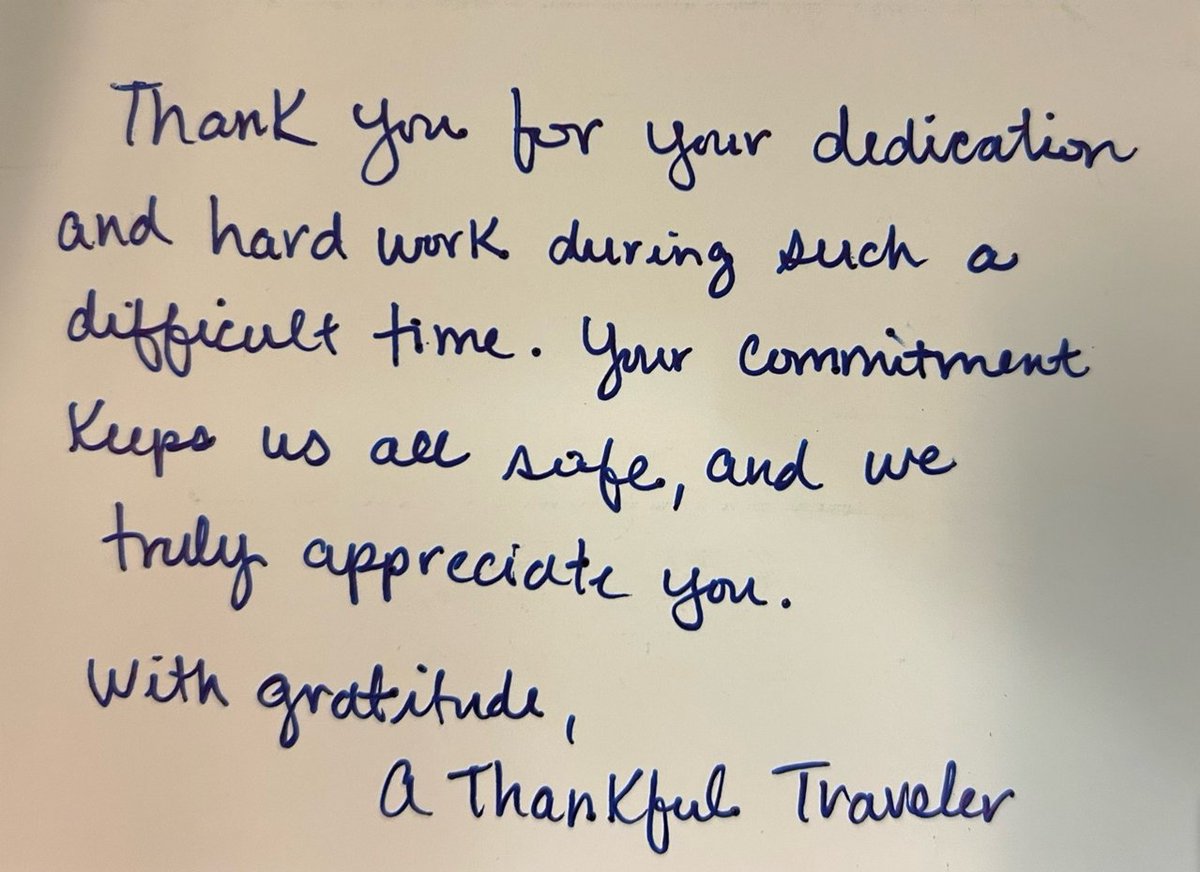 Thank you for your dedication
and hard work during such a
difficult time. Your commitment
Keeps us all safe, and we
truly appreciate you.
With gratitude,
A Thankful Traveler